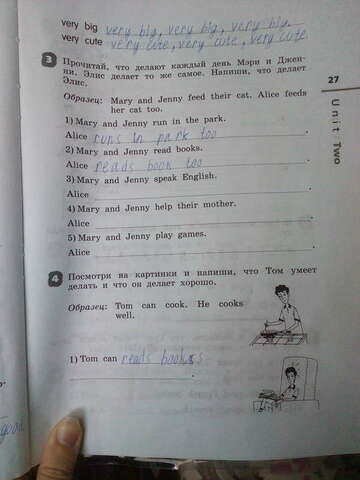 very big very big, very big, very big.
very cute very cute, very cute, very cute.
3 Прочитай, что делают каждый день Мэри и Джен-
ни. Элис делает то же самое. Напиши, что делает
Элис.
27
Unit Two
Образец: Mary and Jenny feed their cat. Alice feeds
her cat too.
1) Mary and Jenny run in the park.
Alice runs in park too.
2) Mary and Jenny read books.
Alice reads book too.
3) Mary and Jenny speak English.
Alice
4) Mary and Jenny help their mother.
Alice
5) Mary and Jenny play games.
Alice
4 Посмотри на картинки и напиши, что Том умеет
делать и что он делает хорошо.
Образец: Tom can cook. He cooks
well.
1) Tom can reads books
good